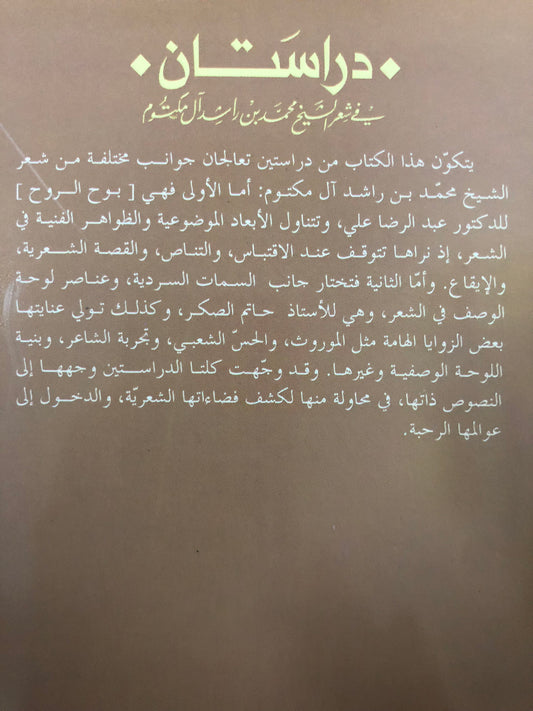 دراستَان
في شعر الشيخ محمد بن راشد آل مكتوم
يتكوّن هذا الكتاب من دراستين تعالجان جوانب مختلفة من شعر
الشيخ محمّد بن راشد آل مكتوم: أما الأولى فهي [ بوح الروح ]
للدكتور عبد الرضا علي، وتتناول الأبعاد الموضوعية والظواهر الفنية في
الشعر، إذ نراها تتوقف عند الاقتباس، والتناص، والقصة الشعرية،
والإيقاع. وأمّا الثانية فتختار جانب السمات السردية، وعناصر لوحة
الوصف في الشعر، وهي للأستاذ حاتم الصكر، وكذلك تولي عنايتها
بعض الزوايا الهامة مثل الموروث، والحسّ الشعبي، وتجربة الشاعر، وبنية
اللوحة الوصفية وغيرها. وقد وجّهت كلتا الدراستين وجهها إلى
النصوص ذاتها، في محاولة منها لكشف فضاءاتها الشعريّة، والدخول إلى
عوالمها الرحبة.